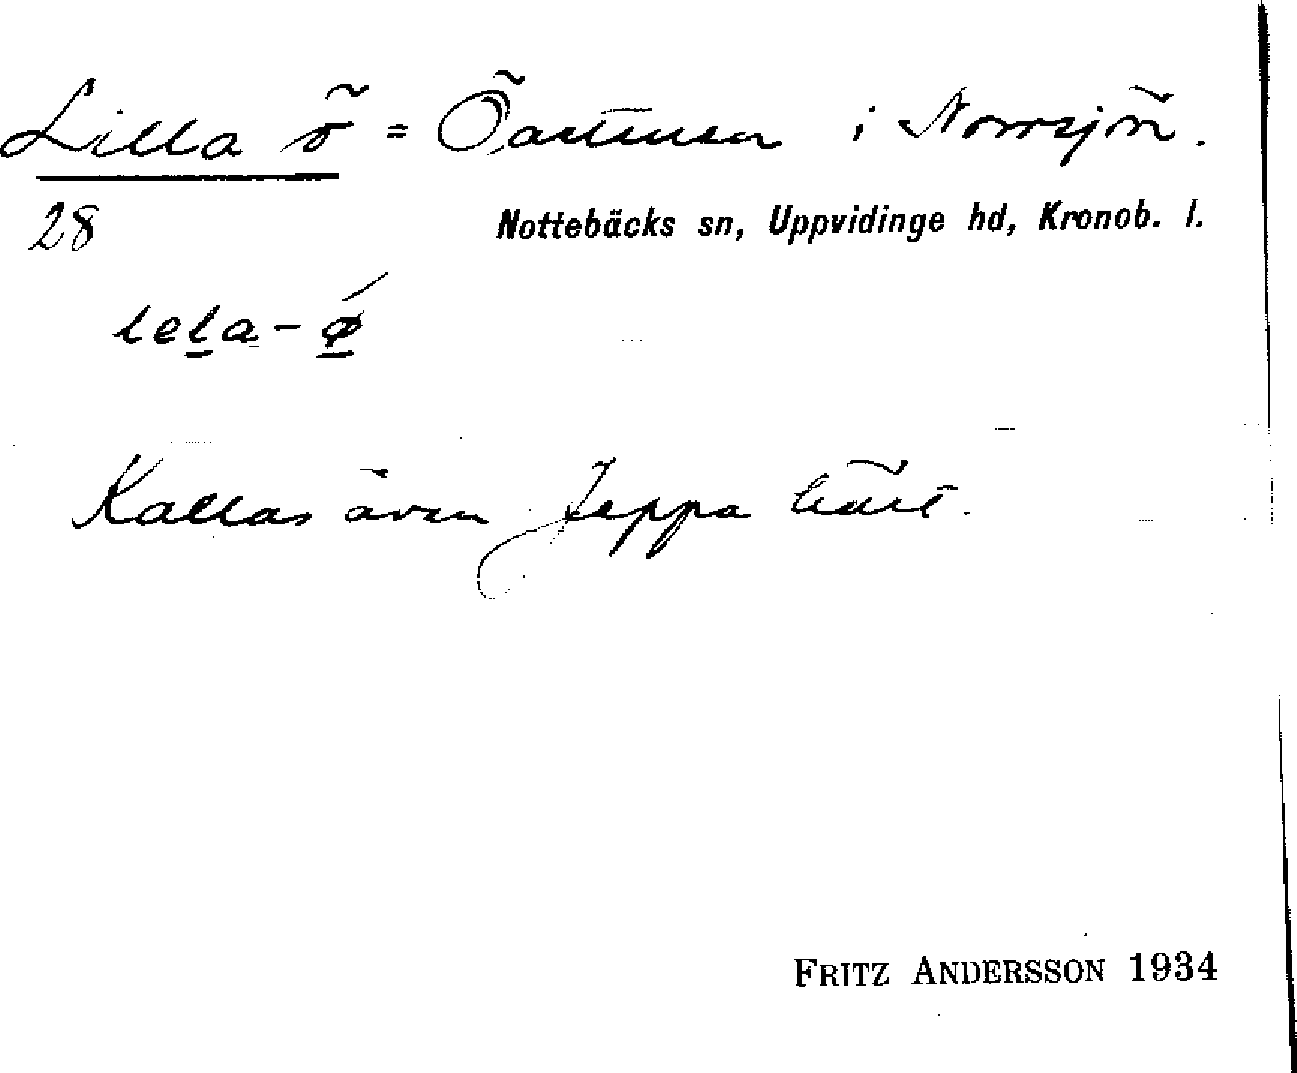 Lilla ö = Öarna i Norrsjön.
28 Nottebäcks sn, Uppvidinge hd, Kronob. l.
leta-ø
Kallas även Jeppa
FRITZ ANDERSSON 1934